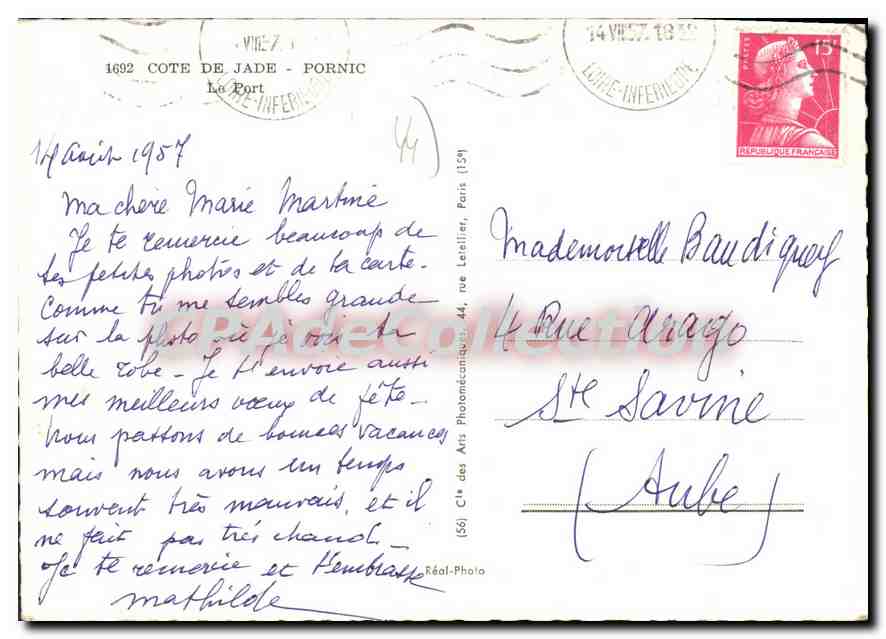 VIII 57
14 VIII 57 18
LOIRE-INFERIEURE
LOIRE-INFERIEURE
POSTES
15F
REPUBLIQUE FRANÇAISE
1692 COTE DE JADE - PORNIC
Le Port
44
14 Août 1957
Ma chère Marie Martine
Je te remercie beaucoup de
tes petites photos et de ta carte.
Comme tu me sembles grande
sur la photo où je vois ta
belle robe - Je t'envoie aussi
mes meilleurs vœux de fête -
Nous passons de bonnes vacances
mais nous avons un temps
souvent très mauvais, et il
ne fait pas très chaud -
Je te remercie et t'embrasse
Mathilde
(56) Cie des Arts Photomécaniques, 44, rue Letellier, Paris (15e)
Réal-Photo
Mademoiselle Baudiquey
4 Rue Arago
Ste Savine
(Aube)
CPAdeCollection.